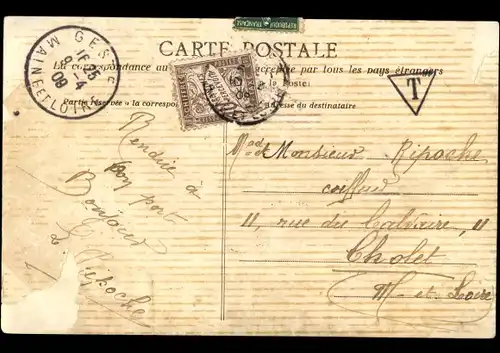 REPUBLIQUE FRANÇAISE
CARTE POSTALE
La correspondance au par tous les pays étrangers
à la Poste.
Partie réservée à la correspon Adresse du destinataire
GESTE
16-25
9-4
09
MAINE-ET-LOIRE
T
Rendue à
bon port
Bonjour
Ripoche
Mad & Monsieur Ripoche
coiffeur
11, rue du Calvaire, 11
Cholet
M-et-Loire